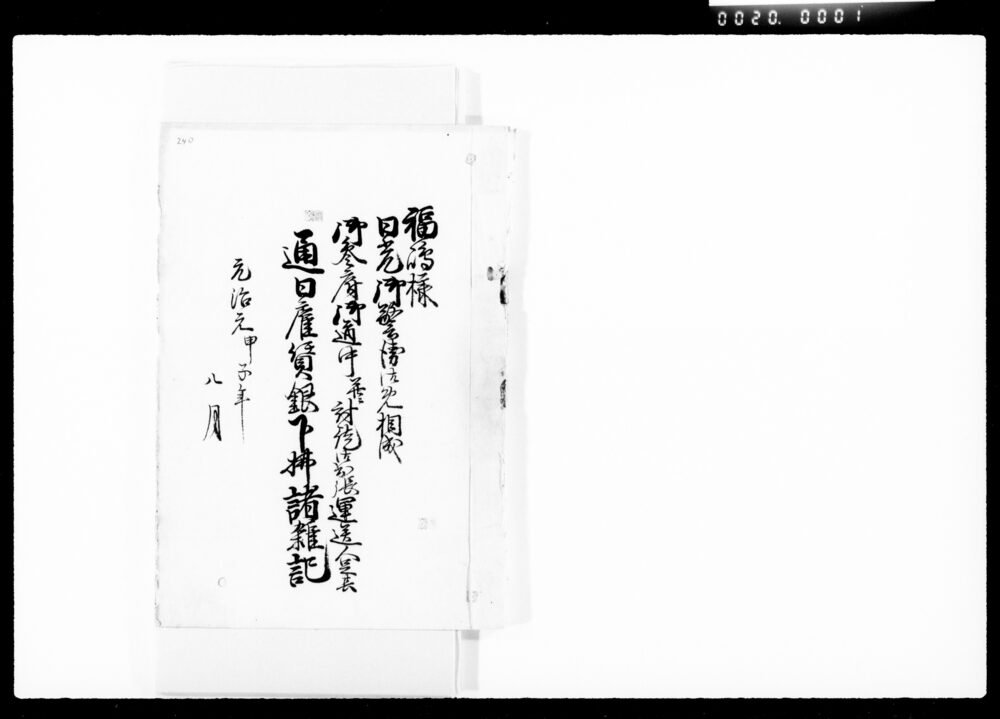 0020. 0001
240
福嶋様
日光御警衛御免相成
御参府御道中并討徒御出張運送人足共
通日雇賃銀下拂諸雑記
元治元甲子年
八月